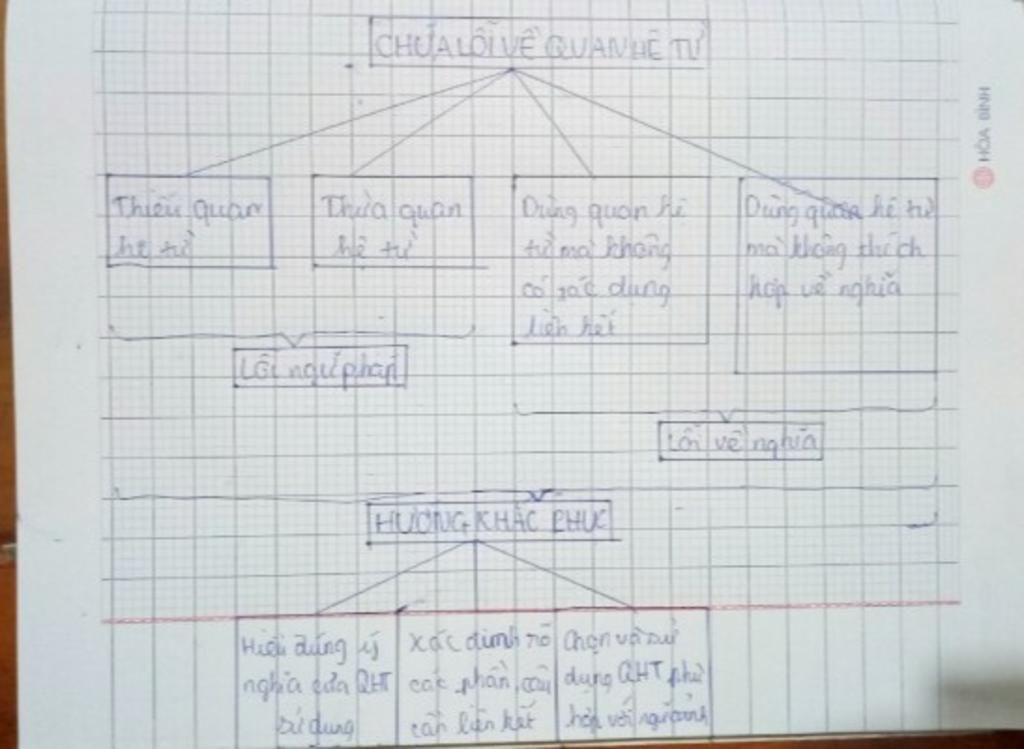 CHỮA LỖI VỀ QUAN HỆ TỪ
HÒA BÌNH
Thiếu quan
hệ từ
Thừa quan
hệ từ
Dùng quan hệ
từ mà không
có tác dụng
liên kết
Dùng quan hệ từ
mà không thích
hợp về nghĩa
Lỗi ngữ pháp
Lỗi về nghĩa
HƯỚNG KHẮC PHỤC
Hiểu đúng ý
nghĩa của QHT
sử dụng
Xác định rõ
các phần, câu
cần liên kết
Chọn và sử
dụng QHT phù
hợp với ngữ cảnh